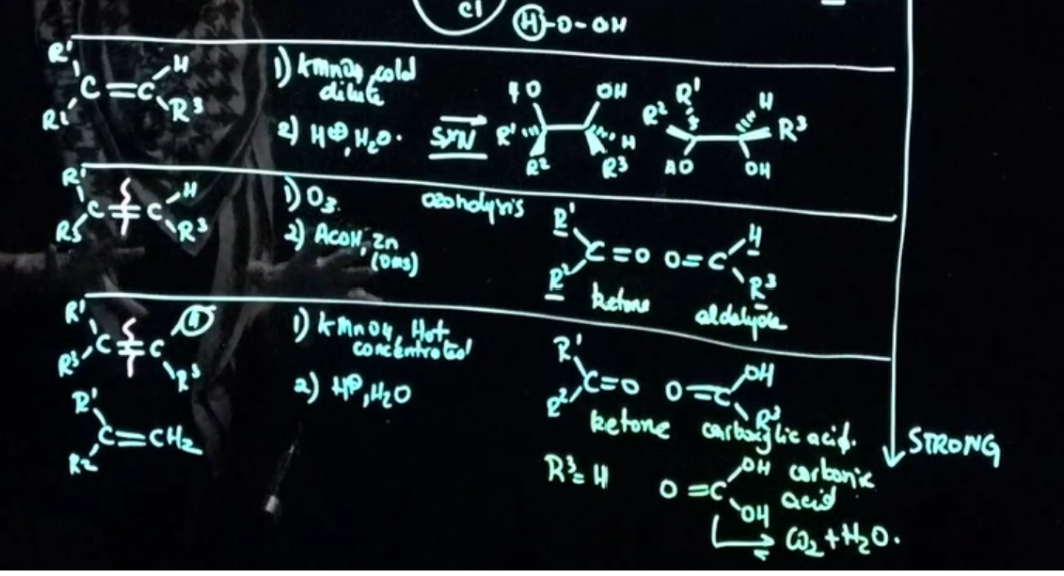 Cl
H-O-OH
R' C=C H R² R³
1) KMnO4, cold
dilute
2) H⊕, H2O.
SYN
HO OH R' R² H R³
R² R' H R³ HO OH
R' C=C H R³
1) O3.
2) AcOH, Zn
(DMS)
ozonolysis
R' R² C=O O=C H R³
ketone aldehyde
R' C=C H R³
1) KMnO4, Hot
concentrated
2) H⊕, H2O
R' R² C=O O=C OH R³
ketone carboxylic acid.
R' R2 C=CH2
STRONG
R³=H
O=C OH OH carbonic
acid
CO2+H2O.